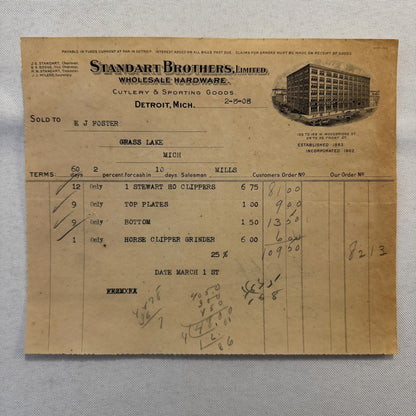 PAYABLE IN FUNDS CURRENT AT PAR IN DETROIT. INTEREST ADDED ON ALL BILLS PAST DUE. CLAIMS FOR ERRORS MUST BE MADE ON RECEIPT OF GOODS.
STANDART BROTHERS, LIMITED,
WHOLESALE HARDWARE.
CUTLERY & SPORTING GOODS.
DETROIT, MICH. 2-8-08
ESTABLISHED 1863
INCORPORATED 1902
SOLD TO E J FOSTER
GRASS LAKE
MICH
TERMS: 60 days 2 percent for cash in 10 days Salesman MILLS Customers Order Nº Our Order Nº
12 Only 1 STEWART HO CLIPPERS 6 75 81 00
9 Only TOP PLATES 1 00 9 00
9 Only BOTTOM 1 50 13 50
1 Only HORSE CLIPPER GRINDER 6 00 6 00
25 % 109 50 82 13
DATE MARCH 1 ST